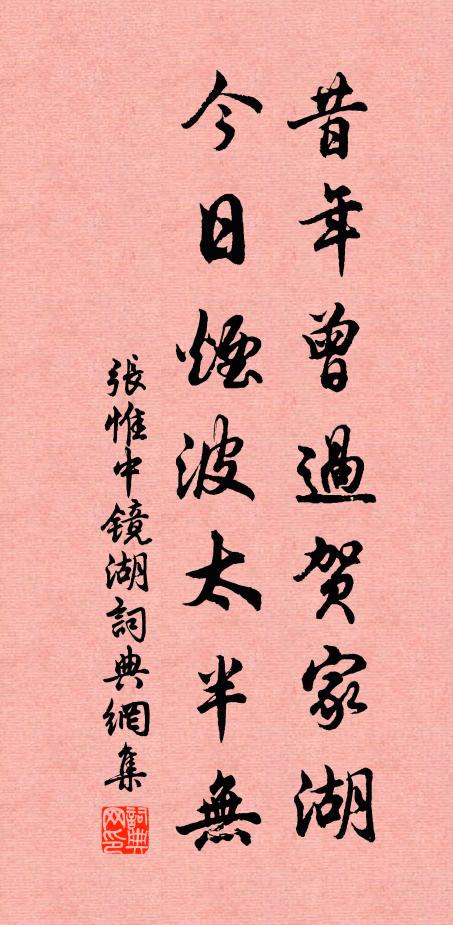 昔年曾過贺家湖
今日煙波太半無
張惟中镜湖詞典網集
詞典网印